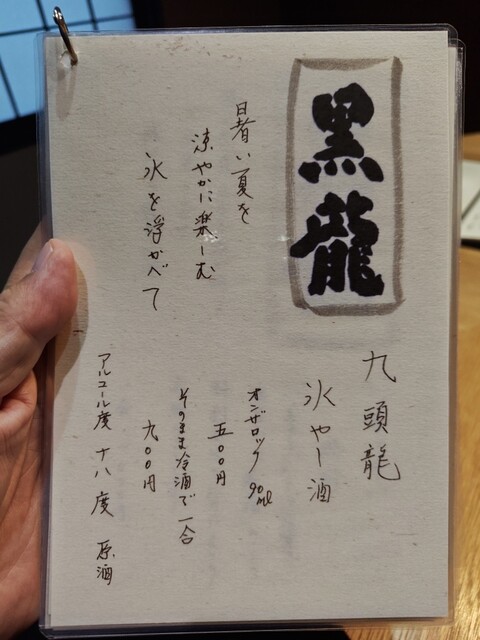 黒龍
暑い夏を
涼やかに楽しむ
氷を浮かべて
九頭龍
氷やし酒
オンザロック 90ml
五〇〇円
そのまま冷酒で一合
九〇〇円
アルコール度 十八度 原酒